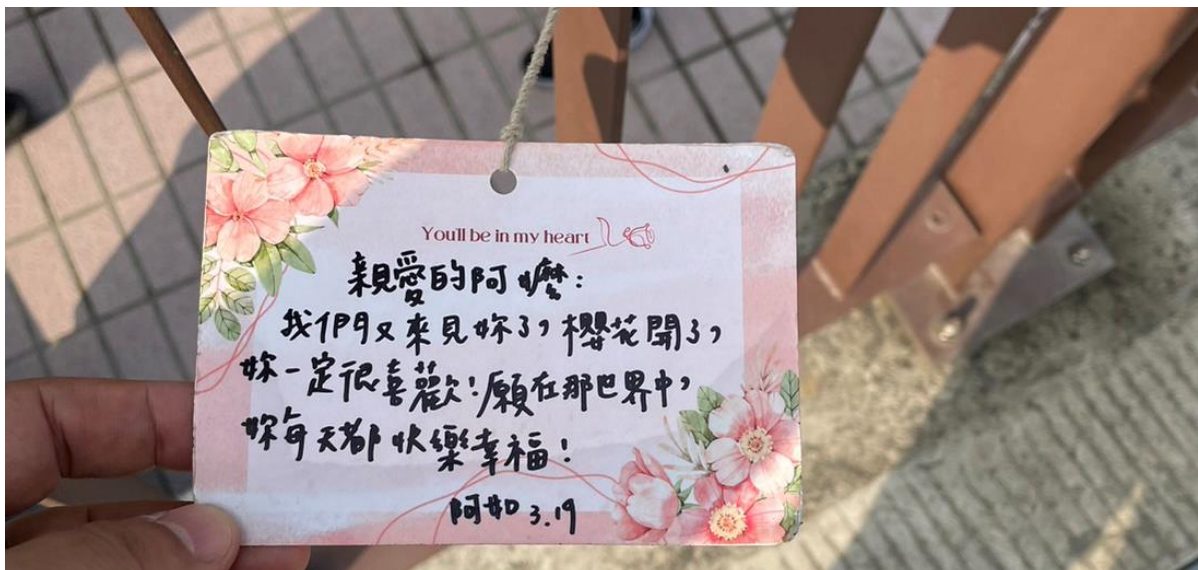 You'll be in my heart
親愛的阿嬤：
我們又來見妳了，櫻花開了，
妳一定很喜歡！願在那世界中，
妳每天都快樂幸福！
阿如 3.19